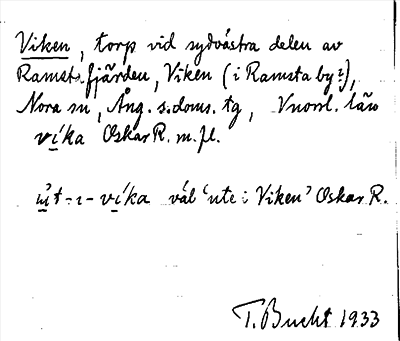 Viken, torp vid sydvästra delen av
Ramstafjärden, Viken (i Ramsta by?),
Nora sn, Ång. s. doms. tg, Vnorrl. län
víka Oskar R. m. fl.
ụ̀t-ı-víka väl 'ute i Viken' Oskar R.
T. Bucht 1933